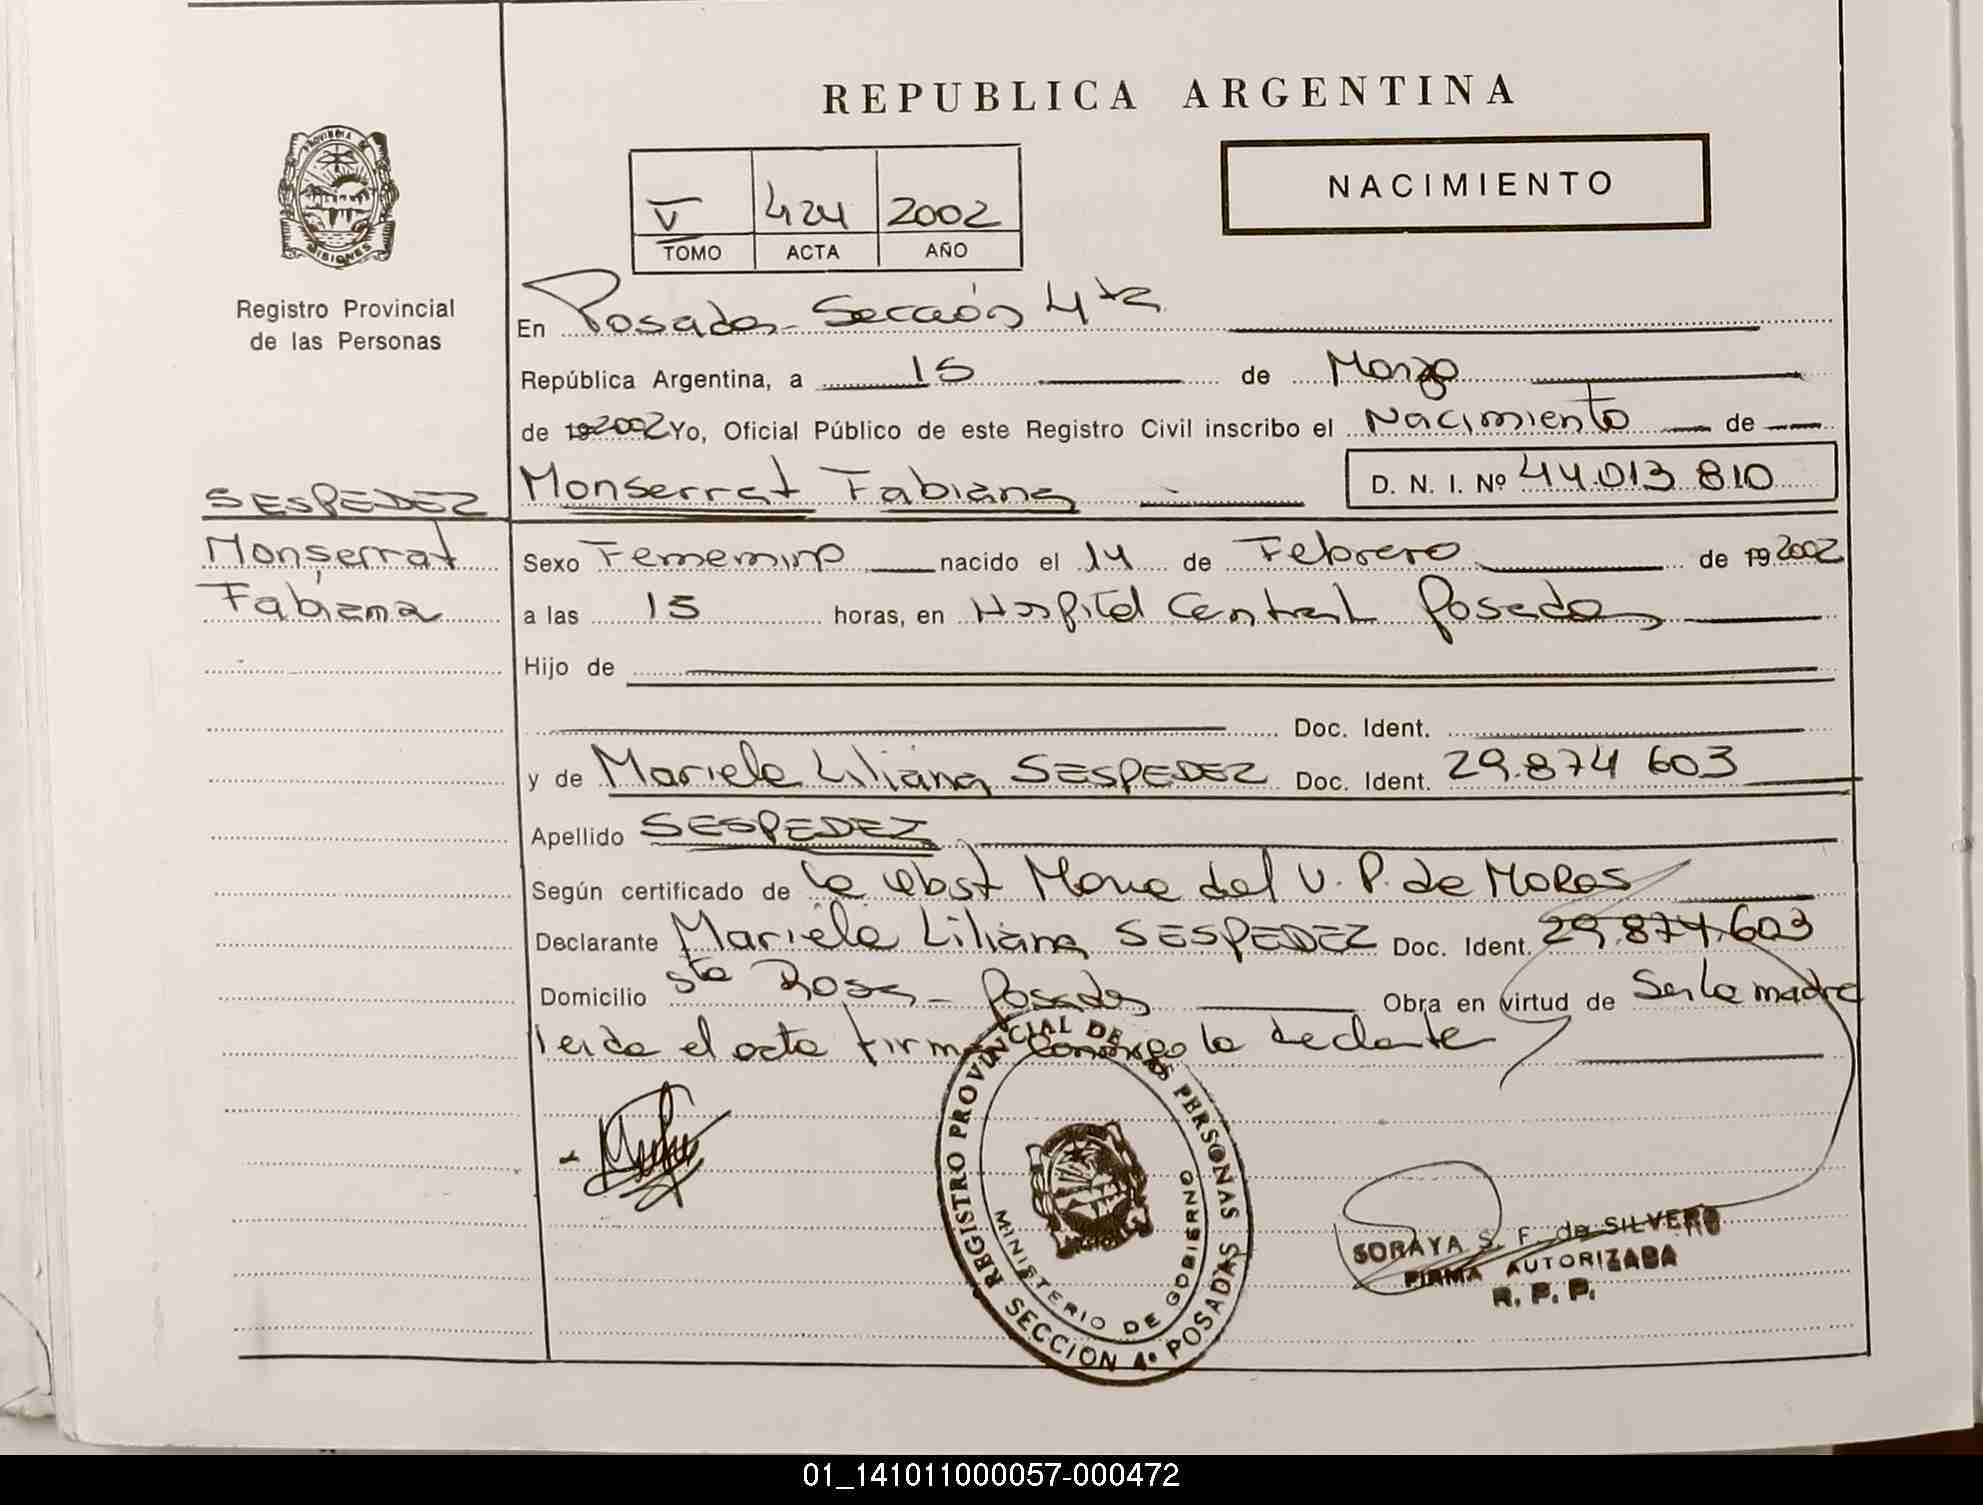 REPUBLICA ARGENTINA
PROVINCIA DE
MISIONES
Registro Provincial
de las Personas
NACIMIENTO
V 424 2002
TOMO ACTA AÑO
En Posadas - Sección 4ta
República Argentina, a 15 de Marzo
de 192002 Yo, Oficial Público de este Registro Civil inscribo el Nacimiento de
Monserrat Fabiana D. N. I. Nº 44.013.810
SESPEDEZ
Monserrat
Fabiana
Sexo Femenino nacido el 14 de Febrero de 19 2002
a las 15 horas, en Hospital Central Posadas
Hijo de
Doc. Ident.
y de Mariela Liliana SESPEDEZ Doc. Ident. 29.874 603
Apellido SESPEDEZ
Según certificado de la obst Maria del V. P. de MORAS
Declarante Mariela Liliana SESPEDEZ Doc. Ident. 29.874.603
Domicilio Sta Rosa - Posadas Obra en virtud de Ser la madre
leida el acta firma conmigo la declarante
REGISTRO PROVINCIAL DE LAS PERSONAS
SECCION 4º POSADAS
MINISTERIO DE GOBIERNO
SORAYA S. F. de SILVERO
FIRMA AUTORIZADA
R. P. P.
01_141011000057-000472